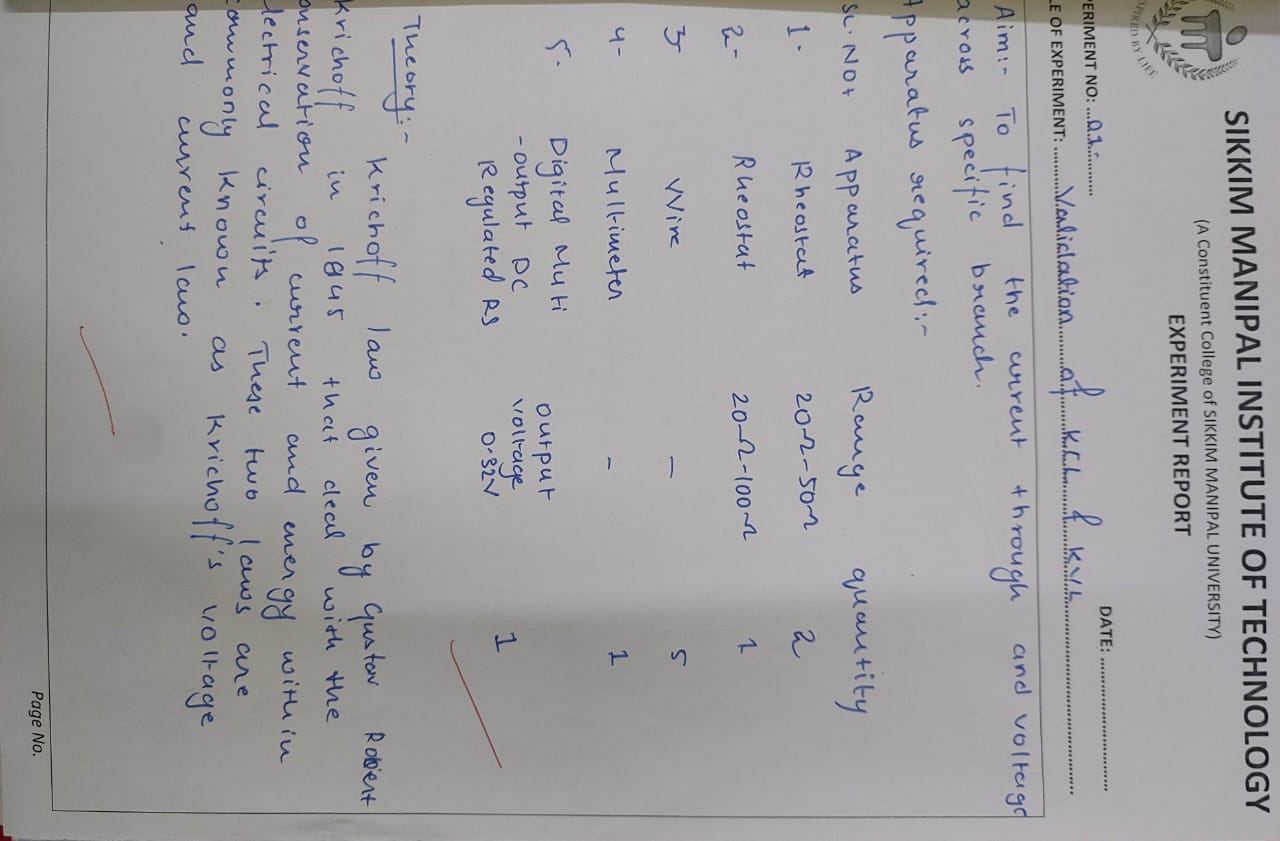 SIKKIM MANIPAL INSTITUTE OF TECHNOLOGY
(A Constituent College of SIKKIM MANIPAL UNIVERSITY)
EXPERIMENT REPORT
SPIRED BY LIFE
DATE: ..............................
ERIMENT NO: ...01:-..........
LE OF EXPERIMENT: ..........Validation.........of.......KCL....&....KVL..............................
Aim:- To find the current through and voltage
across specific branch.
Apparatus required:-
SL. NO. Apparatus Range quantity
1. Rheostat 20Ω-50Ω 2
2- Rheostat 20Ω-100Ω 1
3- Wire — 5
4- Multimeter - 1
5. Digital Muti output
-output DC voltage 1
Regulated RS 0-32V
Theory:-
Krichoff law given by Gustav Robert
Krichoff in 1845 that deal with the
onservation of current and energy within
lectrical circuits. These two laws are
commonly known as Krichoff's voltage
and current law.
Page No.